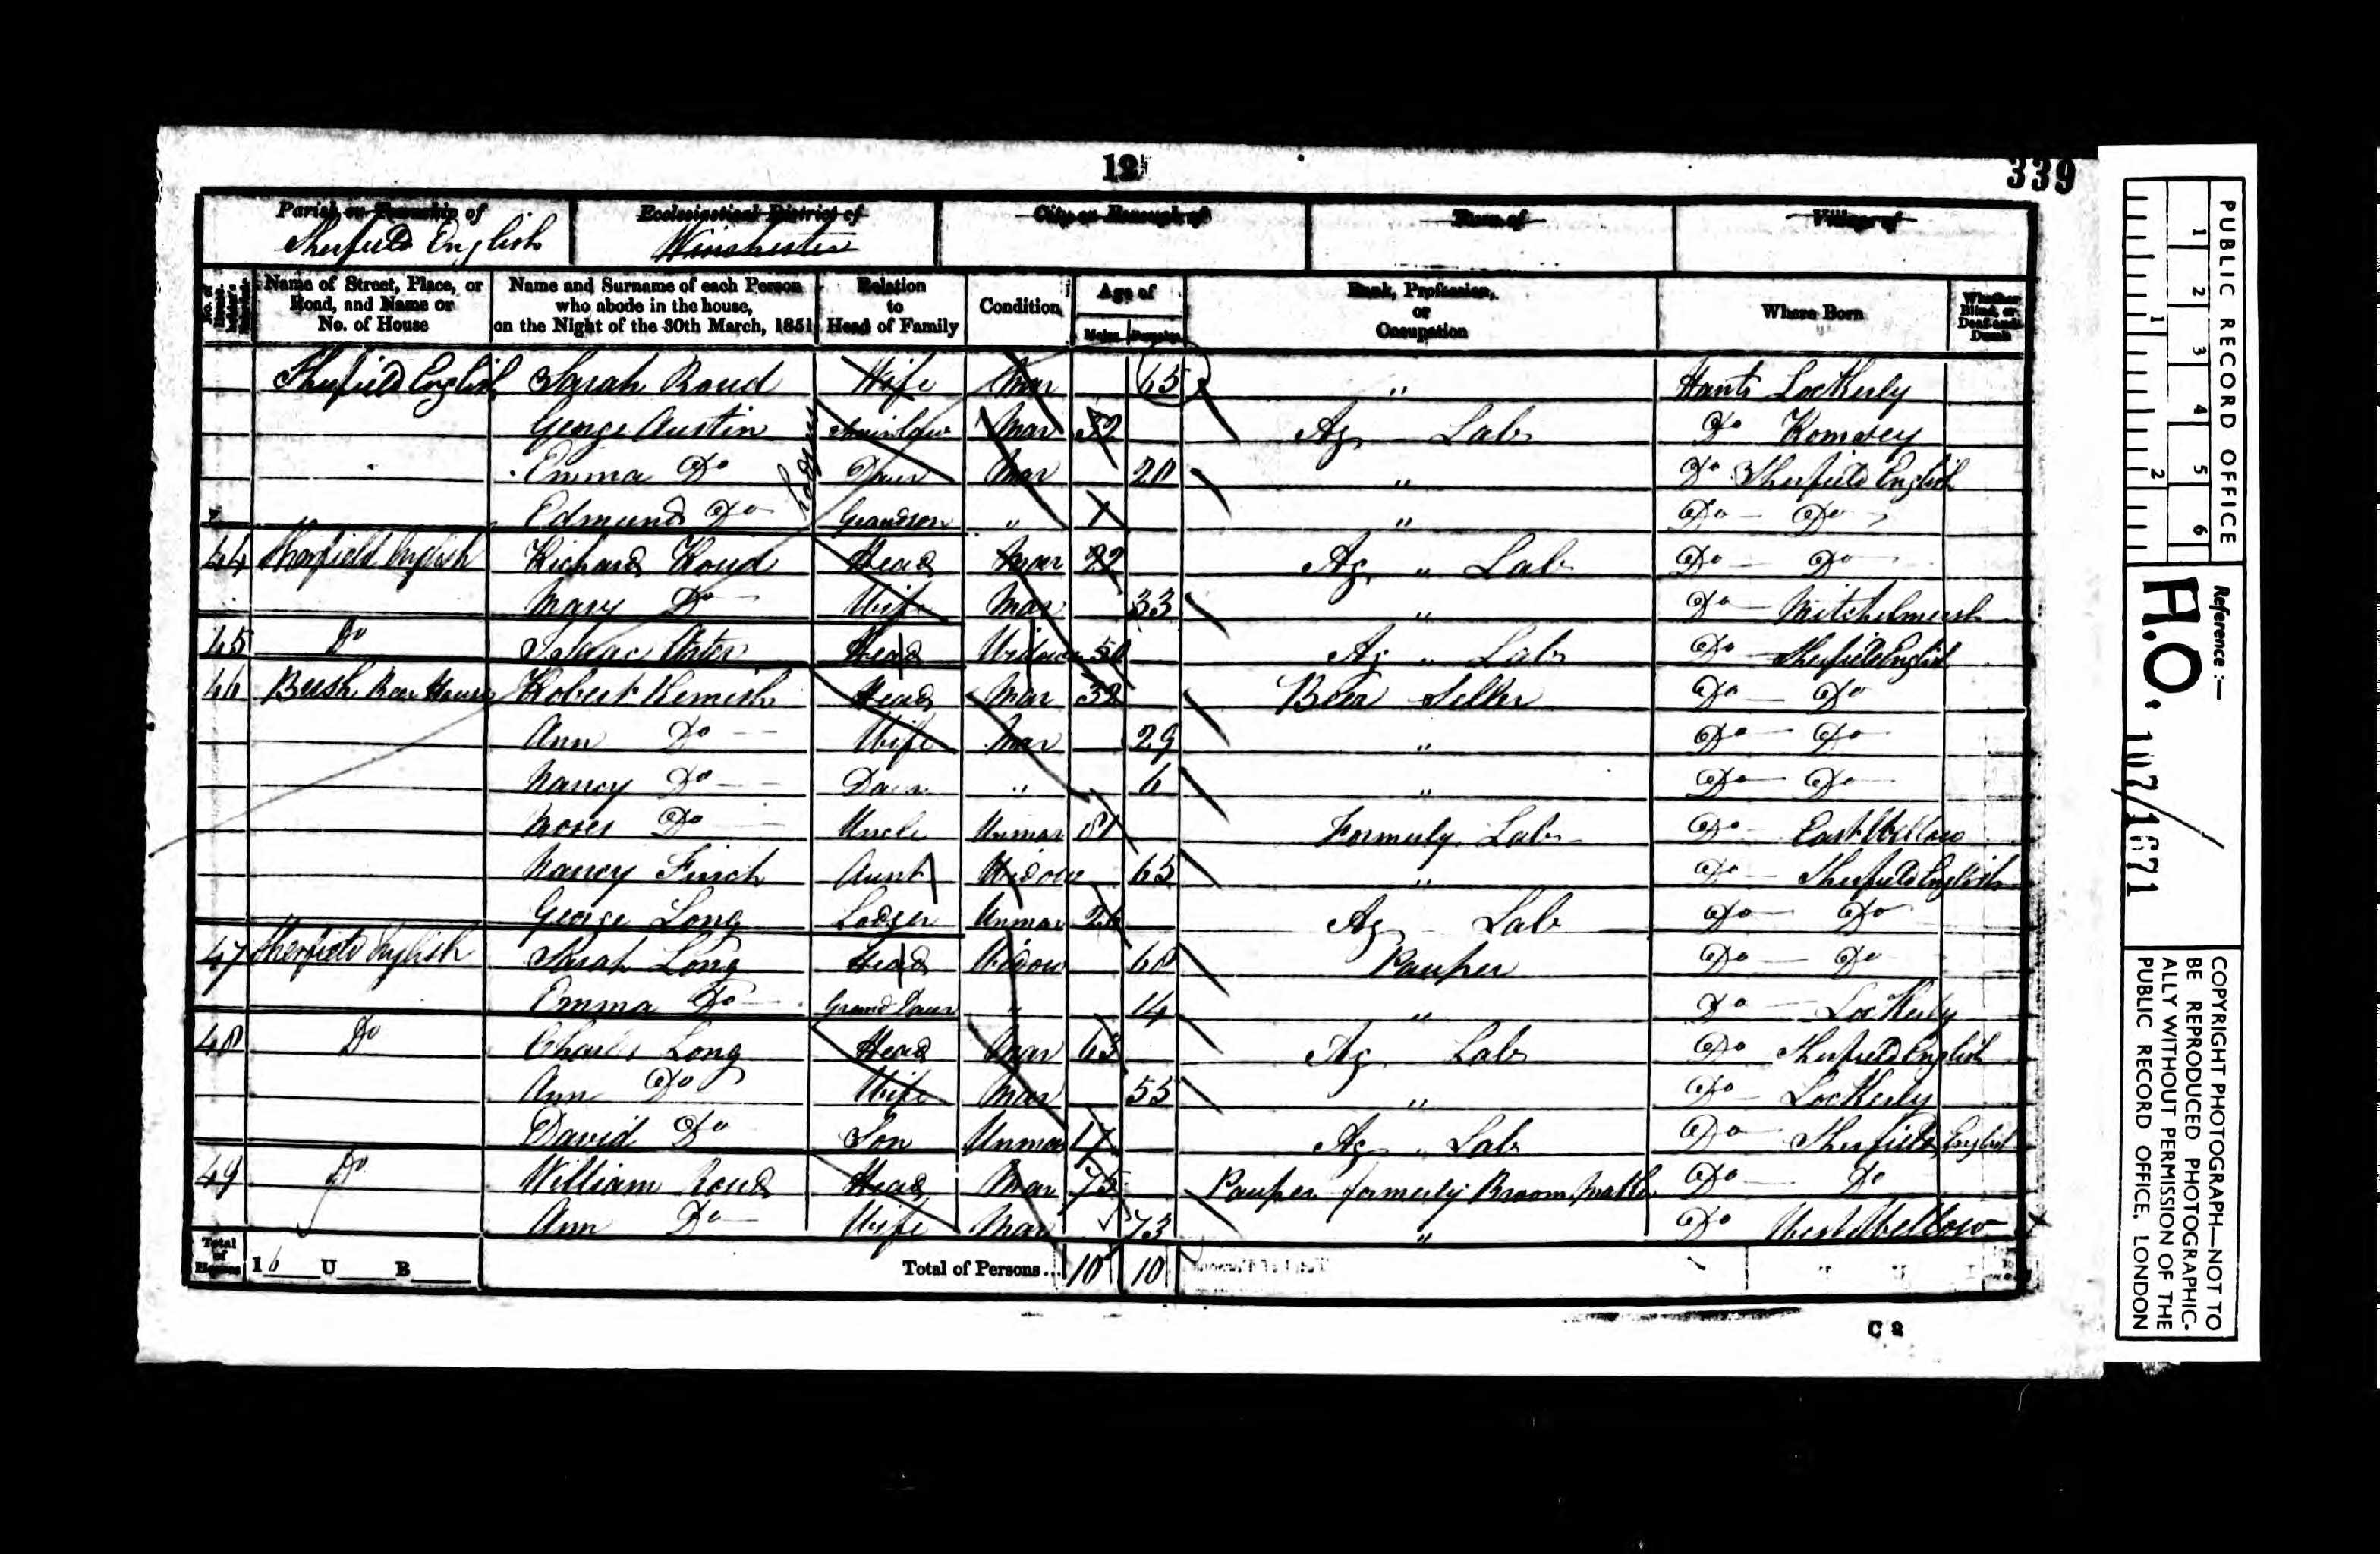 12
339
Parish or Township of
Sherfield English
Ecclesiastical District of
Winchester
City or Borough of
Town of
Village of
Name of Street, Place, or Road, and Name or No. of House
Name and Surname of each Person who abode in the house, on the Night of the 30th March, 1851
Relation to Head of Family
Condition
Age of
Males Females
Rank, Profession, or Occupation
Where Born
Whether Blind, or Deaf-and-Dumb
Sherfield English Sarah Roud Wife Mar 65 " Hants Lockerly
George Austin Mar 32 Ag Lab Do Romsey
Lodgers
Emma Do Daur Mar 20 " Do Sherfield English
Edmund Do Grandson " 1 " Do Do
44 Sherfield English Richard Roud Head Mar 22 Ag " Lab Do Do
Mary Do Wife Mar 33 " Do Mitchelmersh
45 Do Isaac Head Widower 50 Ag " Lab Do Sherfield English
46 Bush Beer House Robert Kemish Head Mar 32 Beer Seller Do Do
Ann Do Wife Mar 29 " Do Do
Nancy Do Daur " 6 " Do Do
Moses Do Uncle Unmar 81 Formerly Lab Do East Wellow
Nancy Finch Aunt Widow 65 " Do Sherfield English
George Long Lodger Unmar 26 Ag Lab Do Do
47 Sherfield English Sarah Long Head Widow 60 Pauper Do Do
Emma Do Grand Daur " 14 " Do Lockerly
48 Do Charles Long Head Mar 63 Ag Lab Do Sherfield English
Ann Do Wife Mar 55 " Do Lockerly
David Do Son Unmar 17 Ag " Lab Do Sherfield English
49 Do William Roud Head Mar 75 Pauper formerly Broom maker Do Do
Ann Do Wife Mar 73 " Do West Wellow
Total of Houses I 6 U B Total of Persons... 10 10
C 2
PUBLIC RECORD OFFICE
1 2 3 4 5 6
1 2
Reference :—
H.O. 107/1671
COPYRIGHT PHOTOGRAPH—NOT TO
BE REPRODUCED PHOTOGRAPHIC-
ALLY WITHOUT PERMISSION OF THE
PUBLIC RECORD OFFICE, LONDON